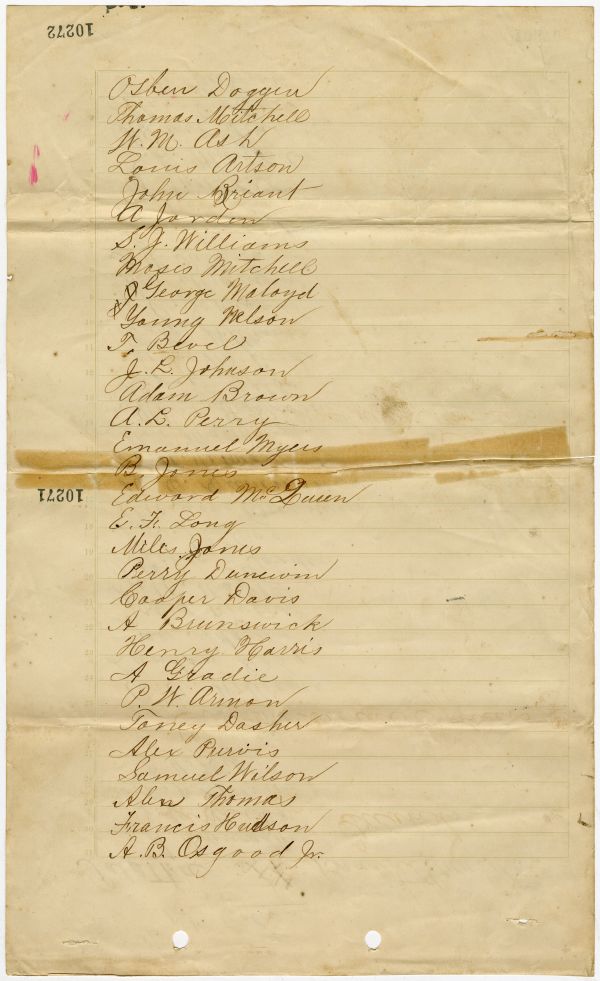 10272
Osben Doggen
Thomas Mitchell
W. M. Ash
Louis Artson
John Briant
A Jorden
S. J. Williams
Moses Mitchell
George Maloyd
Young Nelson
T. Bevel
J. L. Johnson
Adam Brown
A. L. Perry
Emanuel Myers
B Jones
10271
Edward McQueen
E. F. Long
Miles Jones
Perry Dunewin
Cooper Davis
A Brunswick
Henry Harris
A Gradie
P. W. Armon
Toney Dasher
Alex Purvis
Samuel Wilson
Alen Thomas
Francis Hudson
A. B. Osgood Jr.